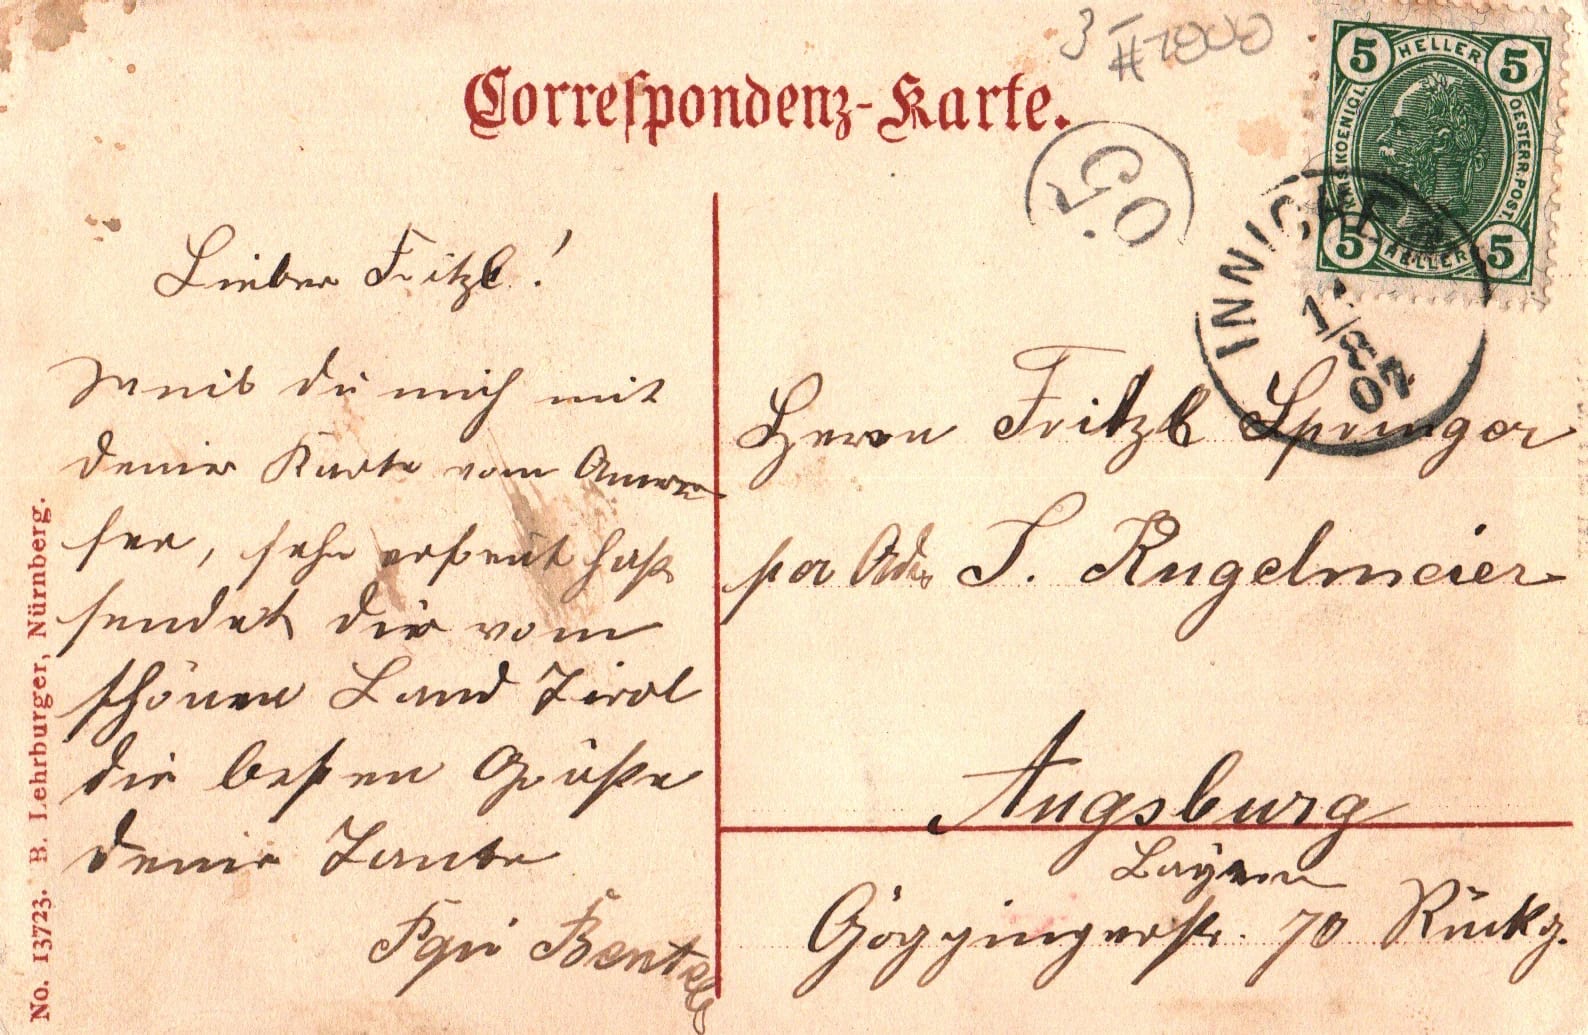 Correspondenz-Karte.
5 HELLER 5
KAIS. KOENIGL. OESTERR. POST.
5 HELLER 5
INNICHEN
8
07
Lieber Fritzl!
du mich mit
deiner Karte vom Ammer
see, sehr erfreut hast
sendet dir vom
schönen Land Tirol
die besten Grüße
deine Tante
Herrn Fritzl Springer
per Adr. J. Kugelmeier
Augsburg
Bayern
Göggingerstr. 70 Rückg.
No. 13723. B. Lehrburger, Nürnberg.